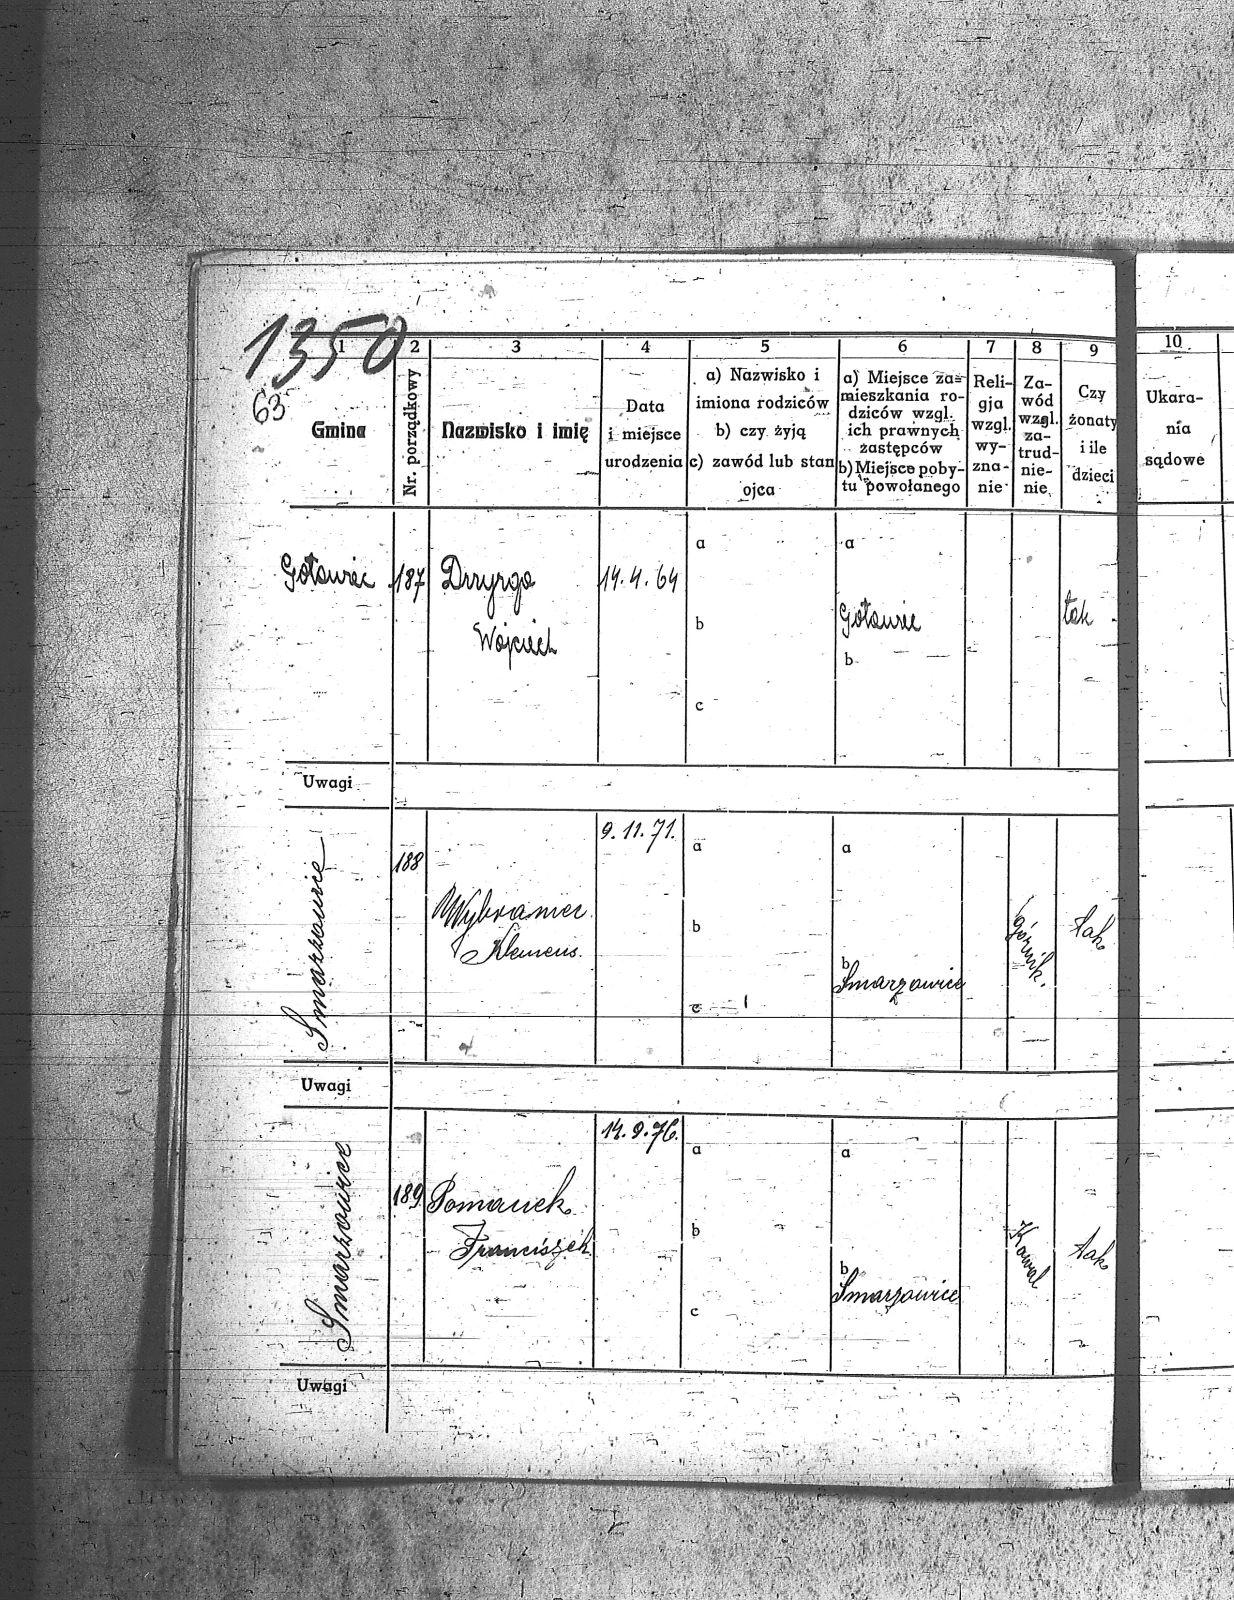 1350
63
1
2
3
4
5
6
7
8
9
10
Gmina
Nr. porządkowy
Nazwisko i imię
Data
i miejsce
urodzenia
a) Nazwisko i
imiona rodziców
b) czy żyją
c) zawód lub stan
ojca
a) Miejsce za=
mieszkania ro-
dziców wzgl.
ich prawnych
zastępców
b) Miejsce poby-
tu powołanego
Reli-
gja
wzgl.
wy-
zna-
nie
Za-
wód
wzgl.
za-
trud-
nie-
nie
Czy
żonaty
i ile
dzieci
Ukara-
nia
sądowe
Gołowiec
187
Dryrga
Wojciech
14.4.64
a
b
c
a
Gołowiec
b
tak
Uwagi
Smarzowice
188
Wybraniec
Klemens.
9.11.71.
a
b
c
a
b
Smarzowice
górnik.
tak
Uwagi
Smarzowice
189
Pomanek
Franciszek
14.9.76.
a
b
c
a
b
Smarzowice
Kowal
tak
Uwagi